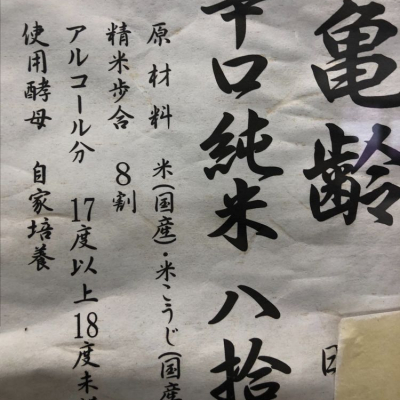 亀齢
辛口純米 八拾
原材料 米(国産)・米こうじ(国産
精米歩合 8割
アルコール分 17度以上18度未
使用酵母 自家培養